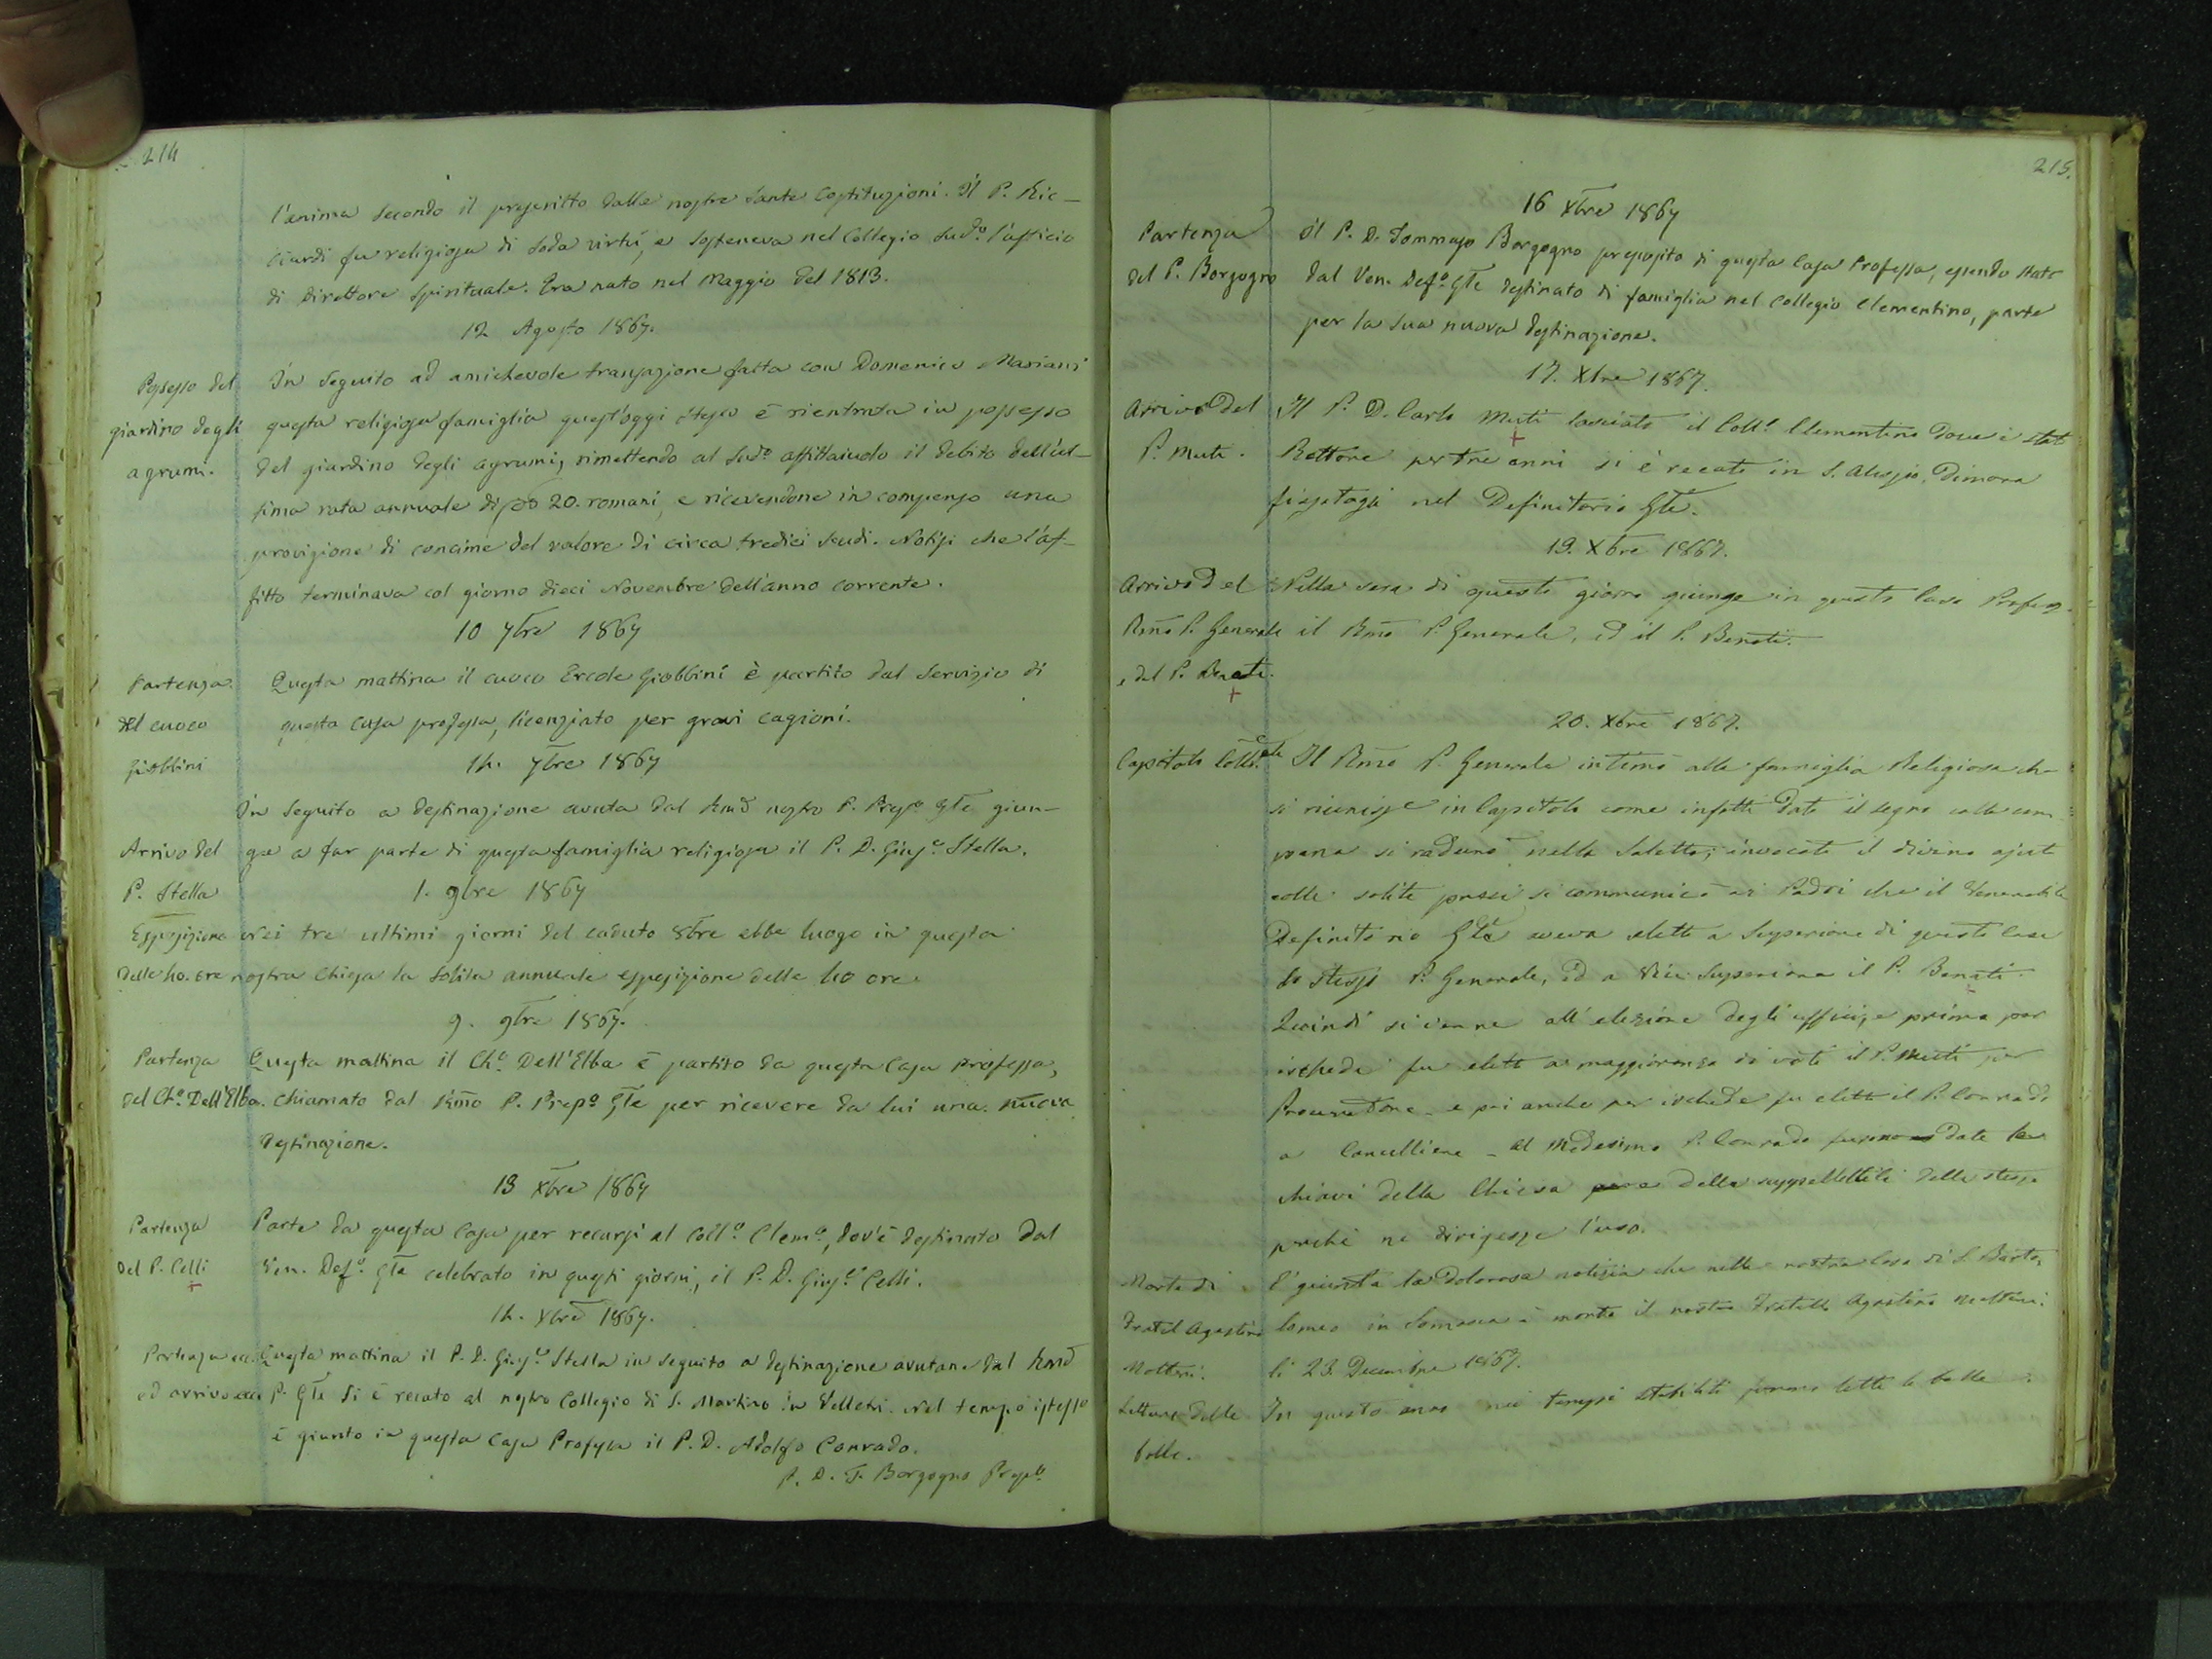 214
l'anima secondo il prescritto dalle nostre Sante Costituzioni. Il P. Ric-
ciardi fu religioso di soda virtù, e sosteneva nel Collegio sud.o l'ufficio
di Direttore Spirituale. Era nato nel Maggio del 1813.
12 Agosto 1867.
Possesso del
giardino degli
agrumi.
In seguito ad amichevole transazione fatta con Domenico Mariani
questa religiosa famiglia quest'oggi stesso è rientrata in possesso
del giardino degli agrumi, rimettendo al sud.o affittaiuolo il debito dell'ul-
tima rata annuale di 20. romani, e ricevendone in compenso una
provizione di concime del valore di circa tredici scudi. Notisi che l'af-
fitto terminava col giorno dieci Novembre dell'anno corrente.
10 7bre 1867
Partenza
del cuoco
Giobbini
Questa mattina il cuoco Ercole Giobbini è partito dal servizio di
questa casa professa, licenziato per gravi cagioni.
14. 7bre 1867
Arrivo del
P. Stella
In seguito a destinazione avuta dal Rmo nostro P. Prep.o Gle giun-
ge a far parte di questa famiglia religiosa il P. D. Gius.e Stella.
1. 9bre 1867
Esposizione
delle 40. ore
Nei tre ultimi giorni del caduto 8bre ebbe luogo in questa
nostra Chiesa la solita annuale esposizione delle 40 ore.
9. 9bre 1867.
Partenza
del Ch.o Dell'Elba.
Questa mattina il Ch.o Dell'Elba è partito da questa Casa professa,
chiamato dal Rmo P. Prep.o Gle per ricevere da lui una nuova
destinazione.
13 Xbre 1867
Partenza
del P. Celli
Parte da questa Casa per recarsi al Coll.o Clem.o, dov'è destinato dal
Ven. Def.o Gle celebrato in questi giorni, il P. D. Gius.e Celli.
14. Xbre 1867.
Partenza ecc.
ed arrivo ecc.
Questa mattina il P. D. Gius.e Stella in seguito a destinazione avutane dal Rmo
P. Gle si è recato al nostro Collegio di S. Martino in Velletri. Nel tempo istesso
è giunto in questa Casa Professa il P. D. Adolfo Conrado.
P. D. T. Borgogno Prep.o
215.
16 Xbre 1867
Partenza
del P. Borgogno
Il P. D. Tommaso Borgogno preposito di questa Casa Professa, essendo stato
dal Ven. Def.o Gle destinato di famiglia nel Collegio Clementino, parte
per la sua nuova destinazione.
17. Xbre 1867.
Arrivo del
P. Muti.
Il P. D. Carlo Muti lasciato il Coll.o Clementino dove è stato
Rettore per tre anni si è recato in S. Alessio, dimora
fissatagli nel Definitorio Gle.
19. Xbre 1867.
Arrivo del
Rmo P. Generale
e del P. Benati.
Nella sera di questo giorno giunge in questa Casa Professa
il Rmo P. Generale, ed il P. Benati.
20. Xbre 1867.
Capitolo Coll.ale
Il Rmo P. Generale intimò alla famiglia Religiosa che
si riunisse in Capitolo come infatti dato il segno colla cam-
pana si radunò nella Saletta; invocato il divino ajuto
colle solite preci si communicò ai Padri che il Venerabile
Definitorio Gle aveva eletto a Superiore di questa Casa
lo stesso P. Generale, ed a Vice Superiore il P. Benati.
Quindi si venne all'elezione degli uffici, e prima per
ischede fu eletto a maggioranza di voti il P. Muti per
Procuratore e poi anche per ischede fu eletto il P. Conrado
a Cancelliere - Al medesimo P. Conrado furono date le
chiavi della Chiesa della suppellettili della stessa
perchè ne dirigesse l'uso.
Morte di
Fratel Agostino
Notteri.
È giunta la dolorosa notizia che nella nostra Casa di S. Barto-
lomeo in Somasca è morto il nostro Fratello Agostino Notteri
li 23. Decembre 1867.
Lettura delle
bolle.
In questo anno nei tempi stabiliti furono lette le bolle